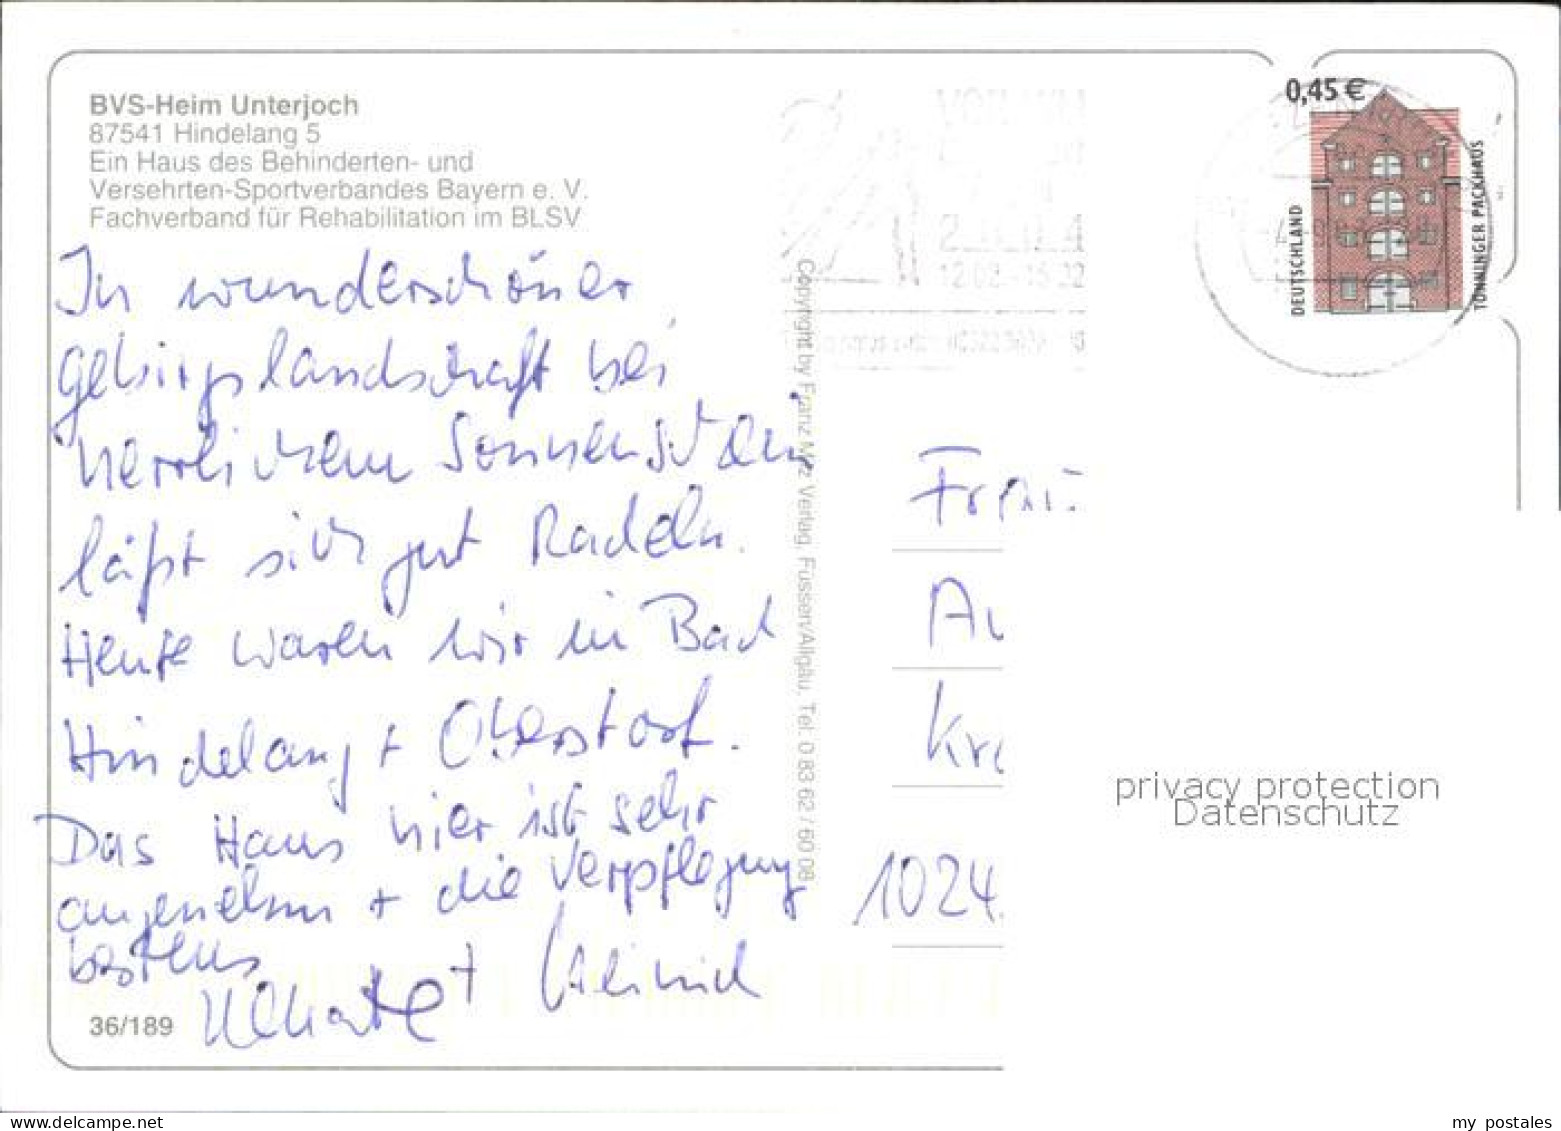 BVS-Heim Unterjoch
87541 Hindelang 5
Ein Haus des Behinderten- und
Versehrten-Sportverbandes Bayern e. V.
Fachverband für Rehabilitation im BLSV
In wunderschöner
Gebirgslandschaft bei
herrlichem Sonnenschein
läßt sich gut Radeln.
Heute waren wir in Bad
Hindelang + Oberstorf.
Das Haus hier ist sehr
angenehm + die Verpflegung
bestens.
+ Heinrich
36/189
Copyright by Franz Milz Verlag, Füssen/Allgäu, Tel. 0 83 62 / 60 08
0,45 €
DEUTSCHLAND
TÖNNINGER PACKHAUS
Frau
Au
Kra
1024
privacy protection
Datenschutz
my postales